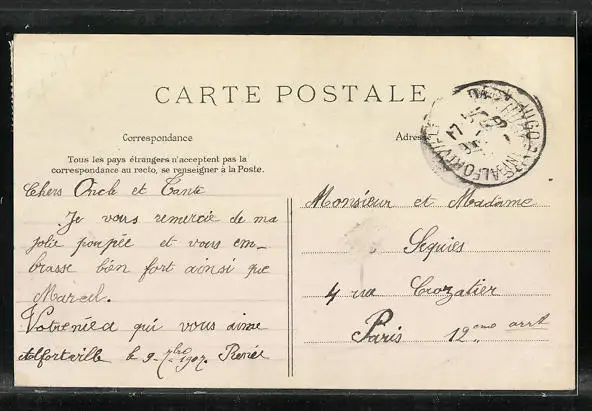 CARTE POSTALE
Correspondance
Tous les pays étrangers n'acceptent pas la
correspondance au recto, se renseigner à la Poste.
Chers Oncle et Tante
Je vous remercie de ma
jolie poupée et vous em-
brasse bien fort ainsi que
Marcel.
Votre nièce qui vous aime
Alfortville le 9- 1907. Renée
Adresse
Monsieur et Madame
Seguies
4 rue Crozatier
Paris 12eme arrt
ALFORTVILLE